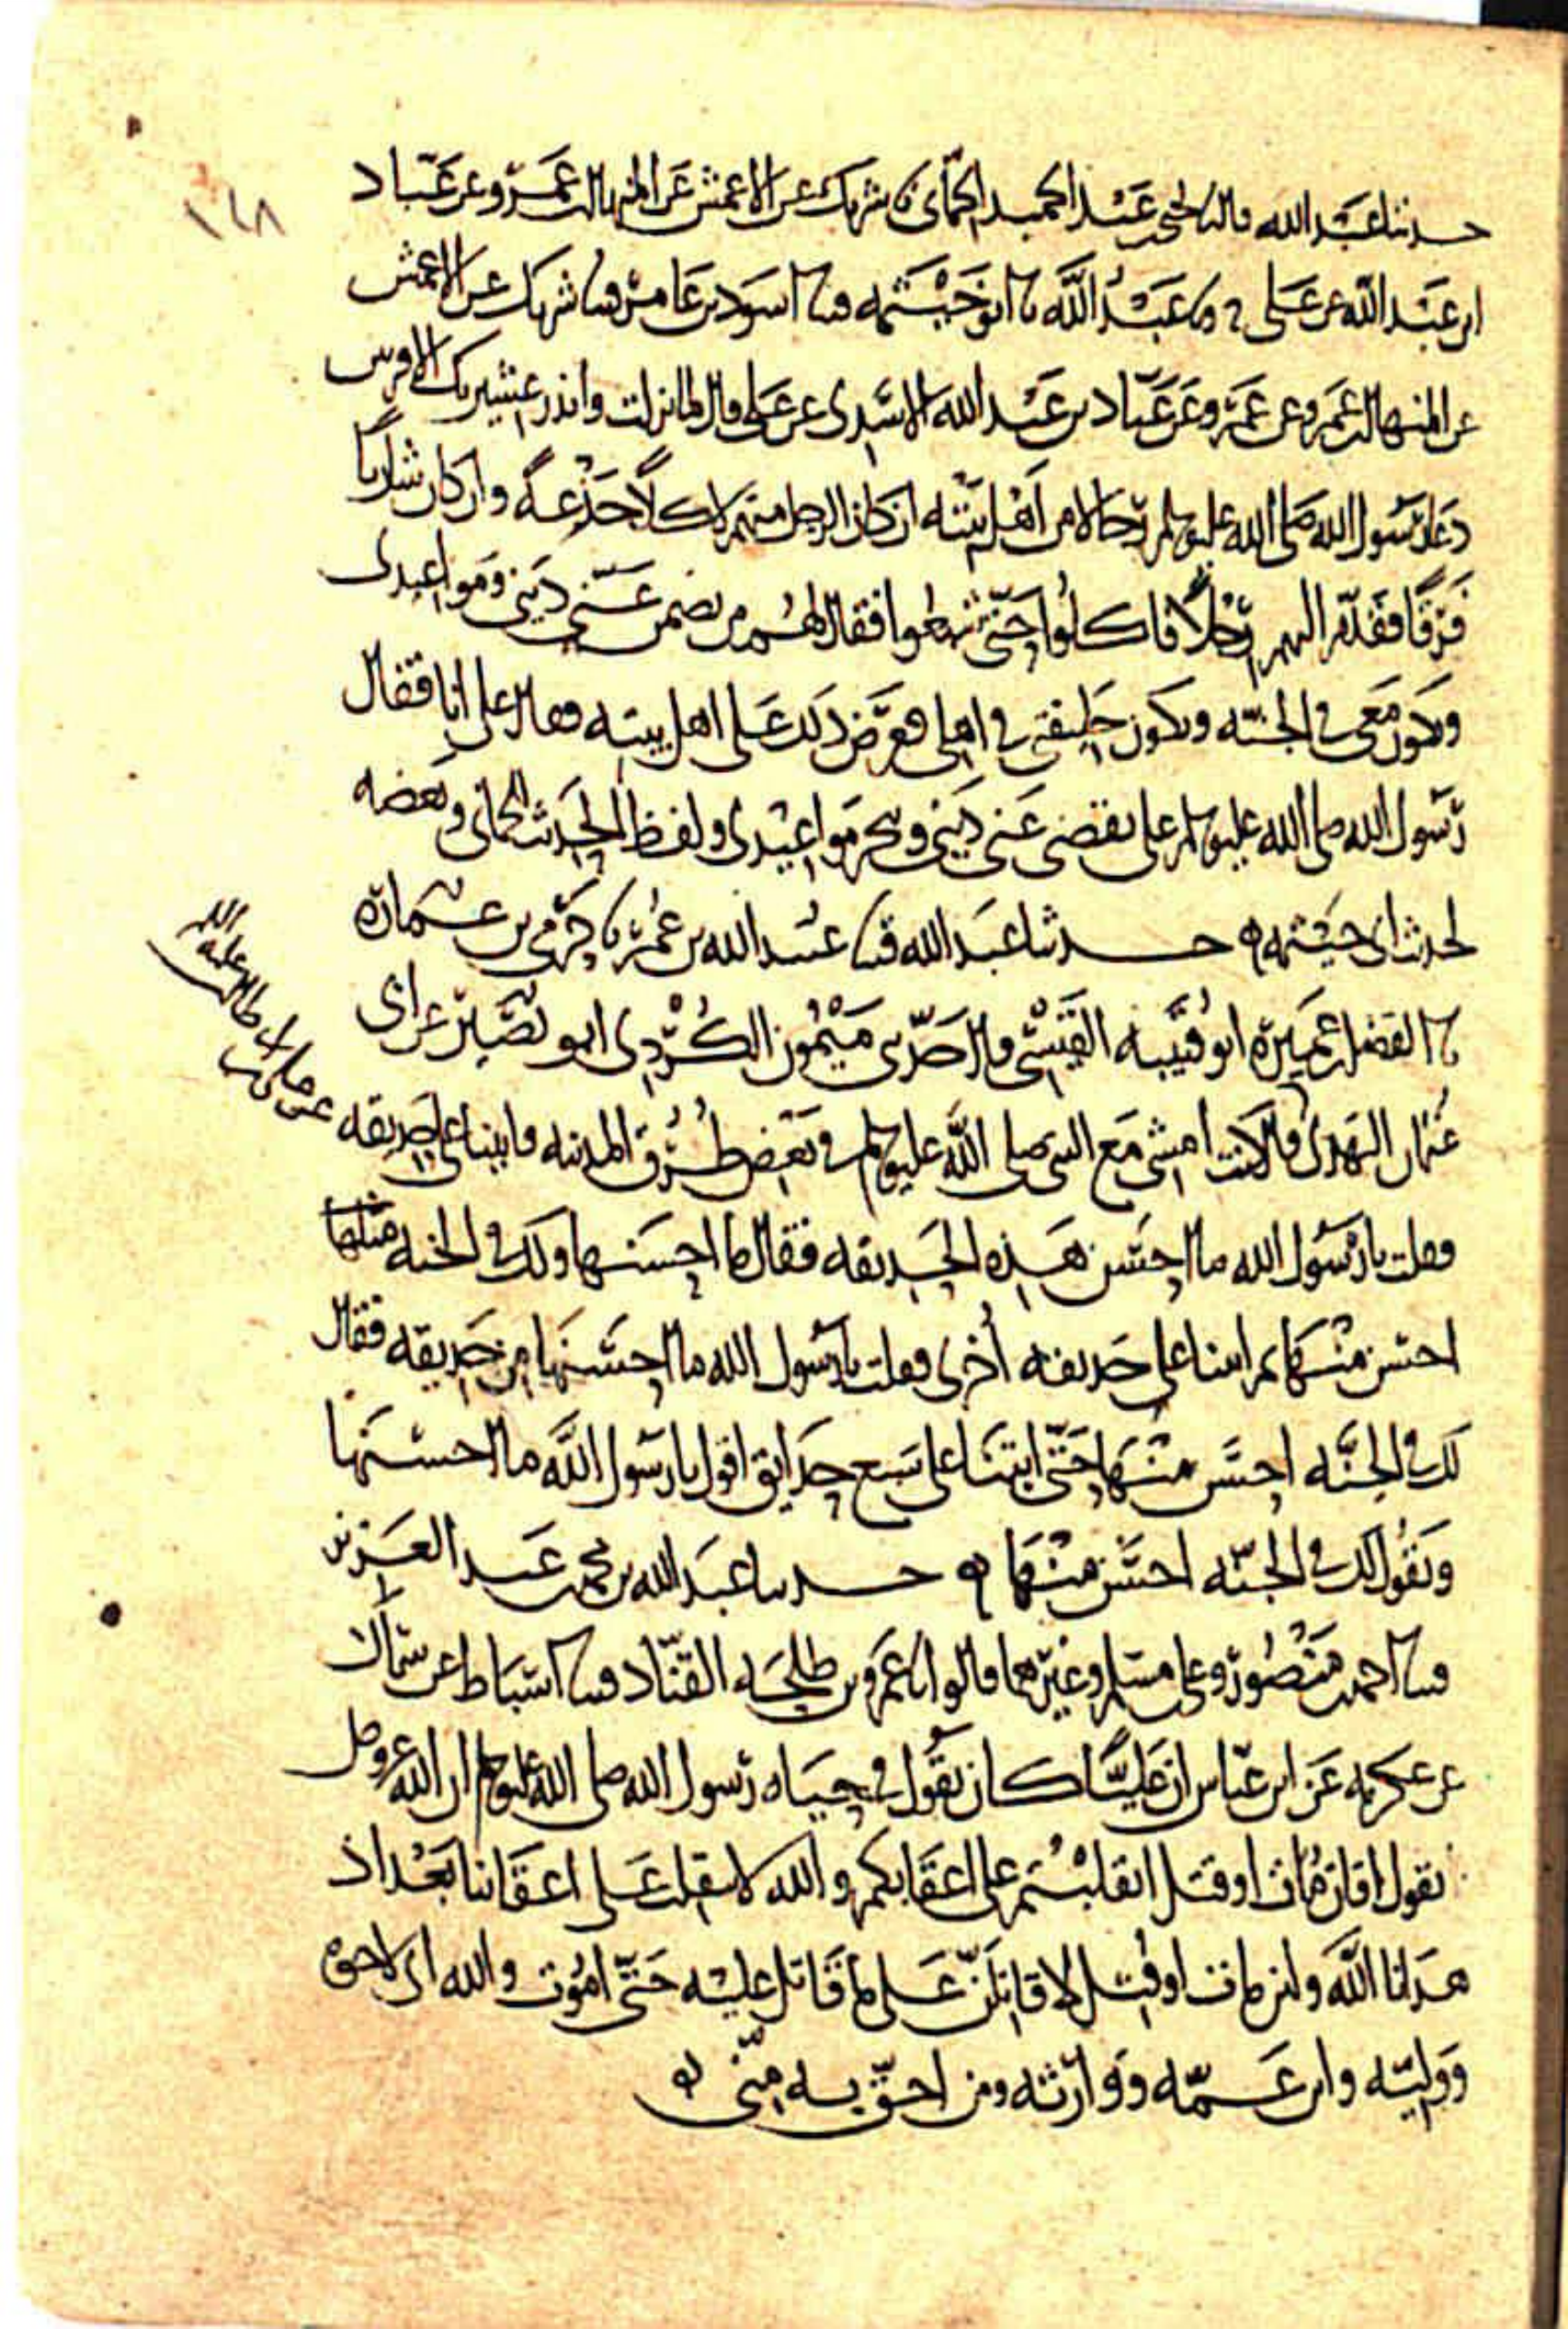 ١٤٨
حدثنا عبد الله قال نا يحيى بن عبد الحميد الحماني نا شريك عن الاعمش عن المنهال بن عمرو عن عباد
ابن عبد الله عن علي ح ونا عبد الله نا ابو خيثمه قثنا اسود بن عامر قثنا شريك عن الاعمش
عن المنهال بن عمرو عن عباد بن عبد الله الاسدي عن علي قال لما نزلت وانذر عشيرتك الاقربين
دعا رسول الله صلى الله عليه وسلم رجالا من اهل بيته ان كان الرجل منهم لاكلا جذعة وان كان شاربا
فرقا فقدم اليهم رجلا فاكلوا حتى شبعوا فقال لهم من يضمن عني ديني ومواعيدي
ويكون معي في الجنه ويكون خليفتي في اهلي فعرض ذلك على اهل بيته فقال علي انا فقال
رسول الله صلى الله عليه وسلم علي يقضي عني ديني وينجز مواعيدي ولفظ الحديث للحماني وبعضه
لحديث ابي خيثمه حدثنا عبد الله قثنا عبيد الله بن عمر نا حرمي بن عماره
نا الفضل بن عميرة ابو قتيبه القيسي قال حدثني ميمون الكردي ابو نصير عن ابي
عثمان النهدي قال كنت امشي مع النبي صلى الله عليه وسلم في بعض طرق المدينه فاتينا على حديقه
عن علي بن ابي طالب عليه السلم
فقلت يا رسول الله ما احسن هذه الحديقه فقال ما احسنها ولك في الجنه مثلها
احسن منها ثم اتينا على حديقه اخرى فقلت يا رسول الله ما احسنها من حديقه فقال
لك في الجنه احسن منها حتى اتينا على سبع حدايق اقول يا رسول الله ما احسنها
ويقول لك في الجنه احسن منها حدثنا عبد الله بن محمد بن عبد العزيز
قثنا احمد بن منصور وعلي بن مسلم وغيرهما قالوا نا عمرو بن طلحه القناد قثنا اسباط عن سماك
عن عكرمه عن ابن عباس ان عليا كان يقول في حياه رسول الله صلى الله عليه وسلم ان الله عز وجل
يقول افان مات او قتل انقلبتم على اعقابكم والله لا ننقلب على اعقابنا بعد اذ
هدانا الله ولئن مات او قتل لاقاتلن على ما قاتل عليه حتى اموت والله اني لاخوه
ووليه وابن عمه ووارثه ومن احق به مني